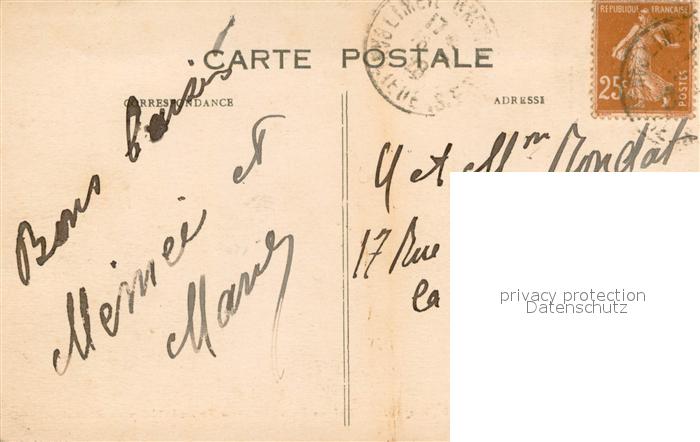 CARTE POSTALE
CORRESPONDANCE
ADRESSE
REPUBLIQUE FRANÇAISE
25
POSTES
Bons baisers
Mémée et
Marie
M et Mme Rondat
17 Rue
la
privacy protection
Datenschutz